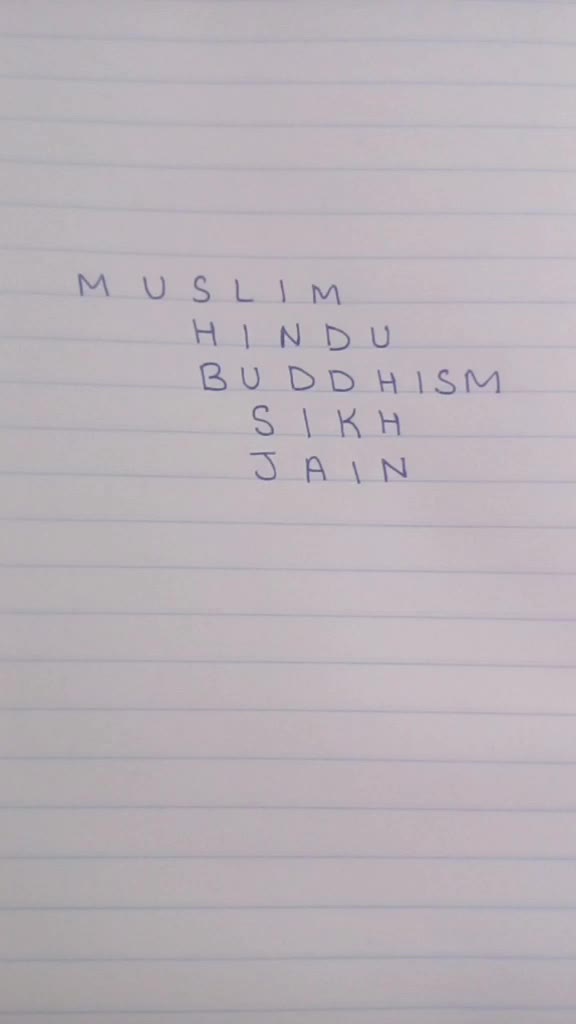 MUSLIM
HINDU
BUDDHISM
SIKH
JAIN